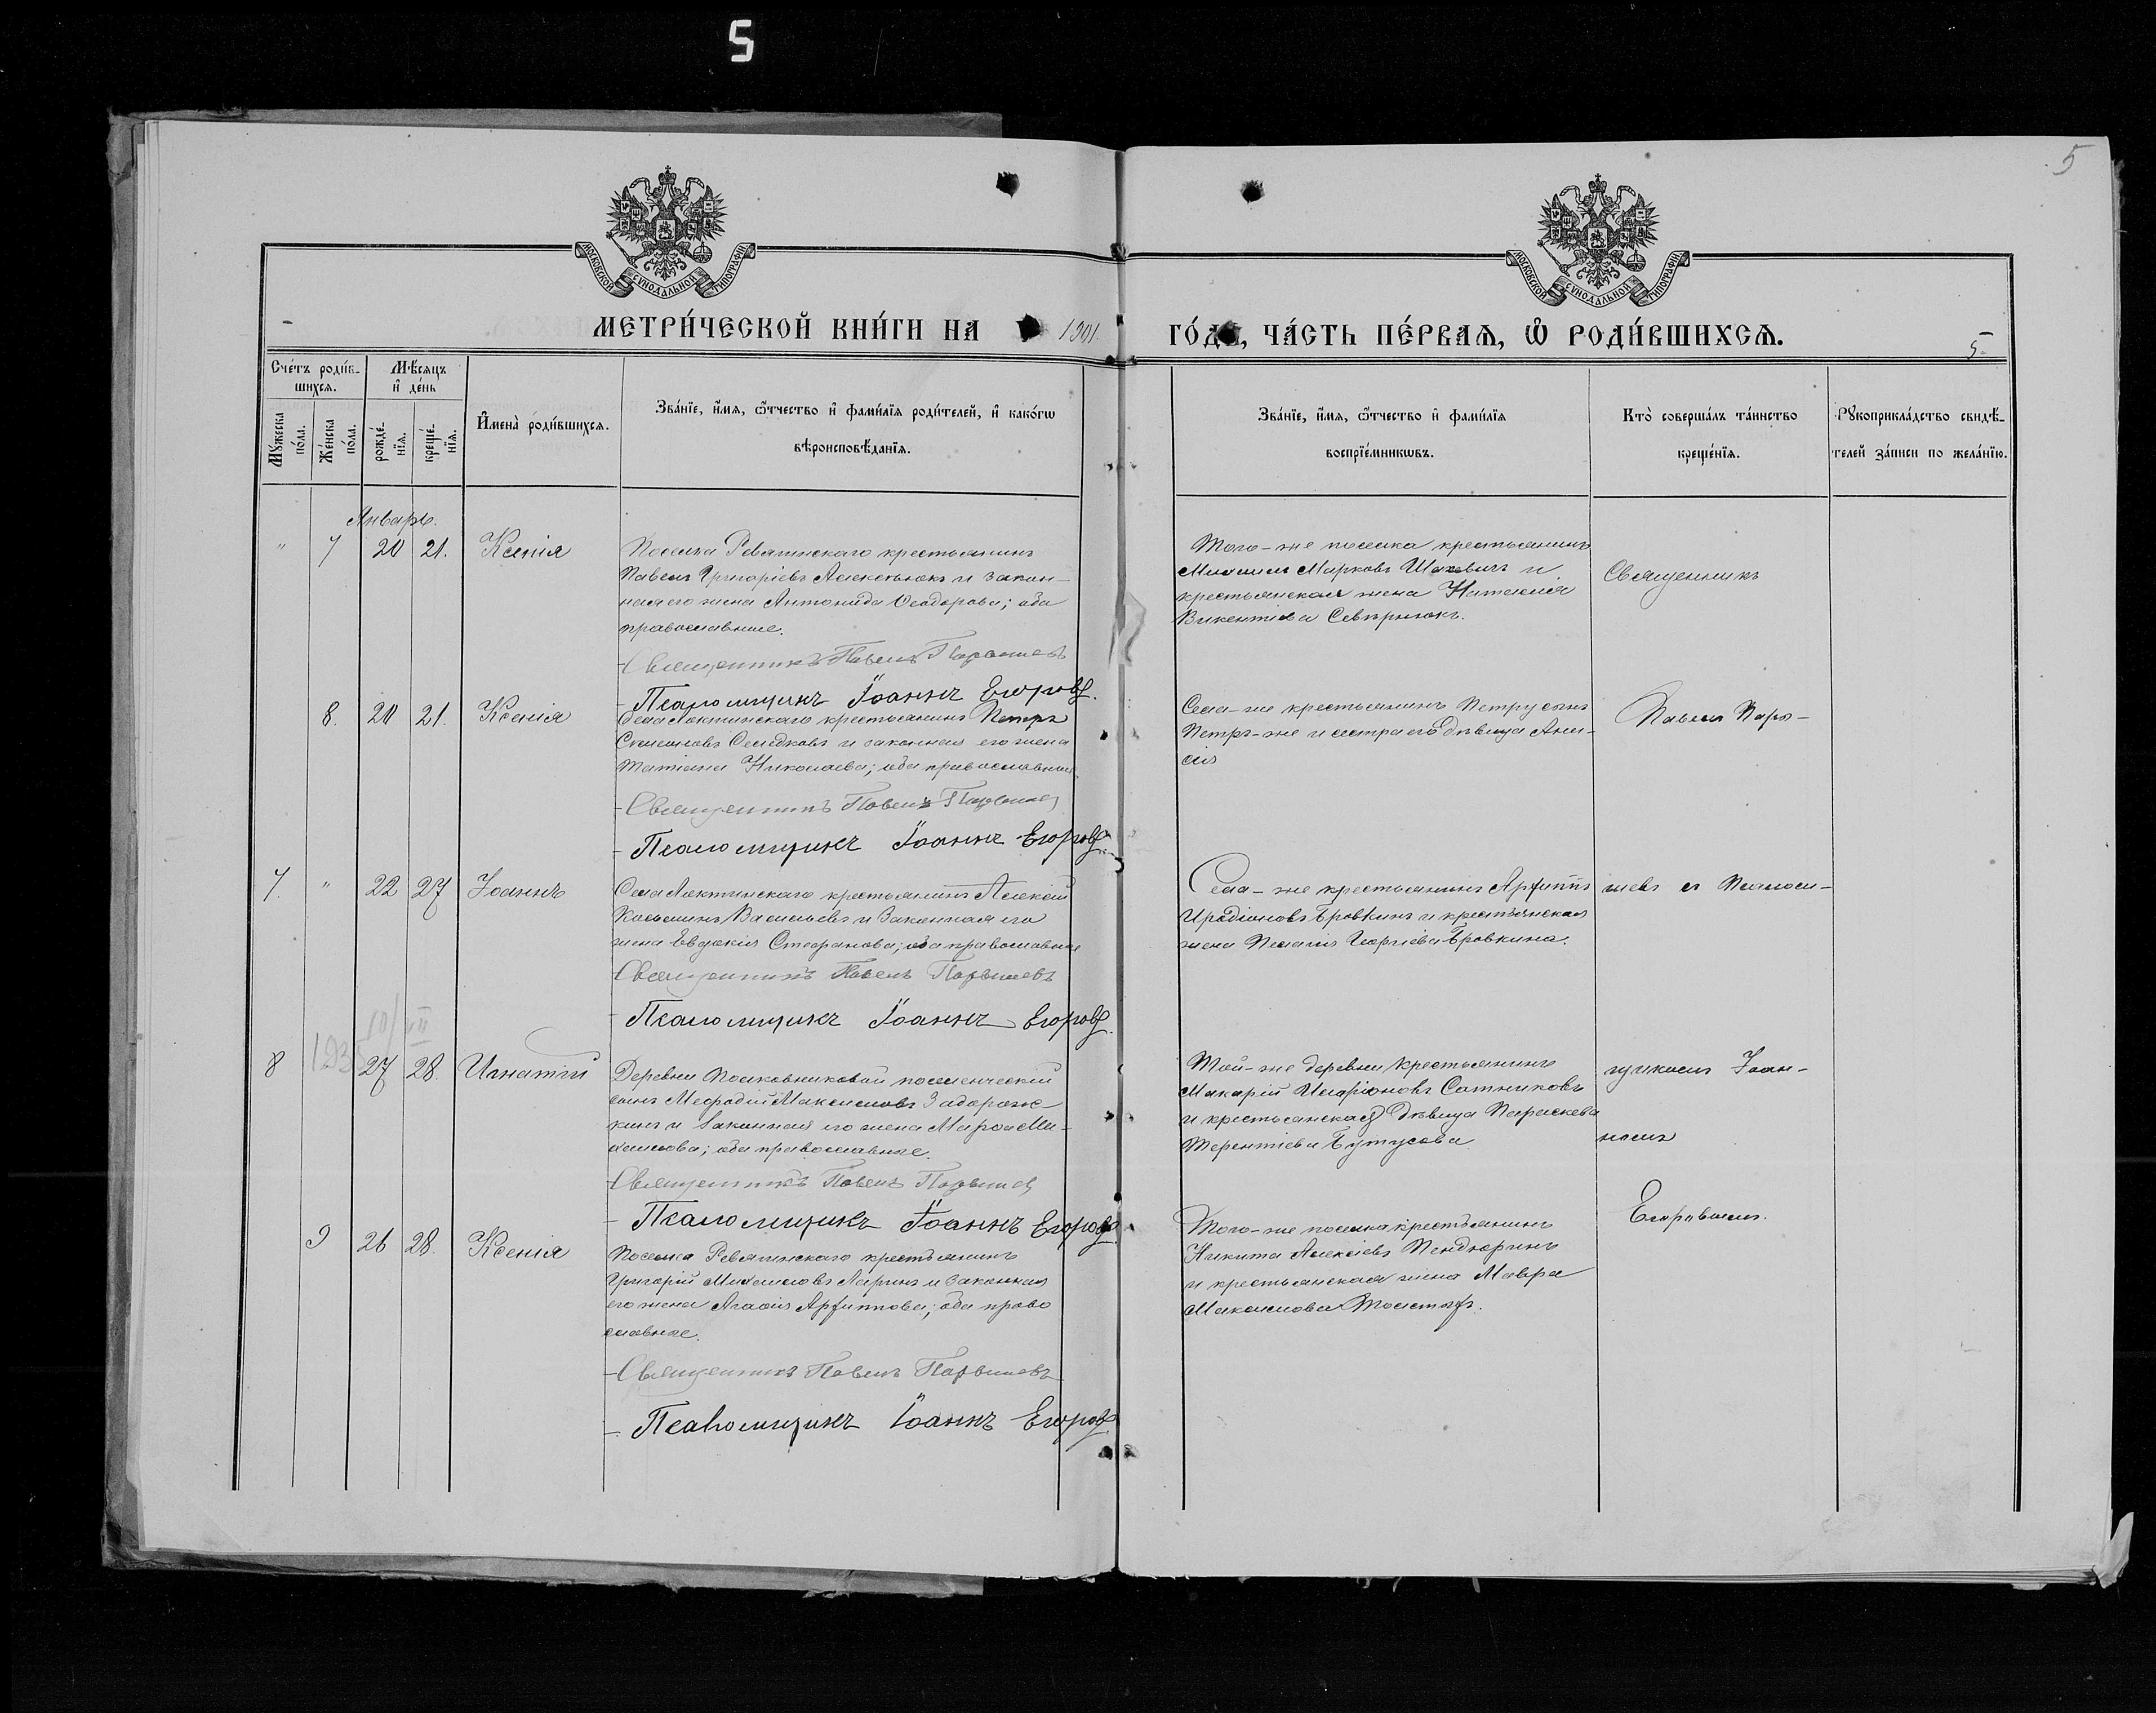 5
5
МОСКОВСКОЙ СѴНОДАЛЬНОЙ ТИПОГРАФІИ
МОСКОВСКОЙ СѴНОДАЛЬНОЙ ТИПОГРАФІИ
МЕТРИ́ЧЕСКОЙ КНИ́ГИ НА 1901
ГО́ДЪ, ЧА́СТЬ ПЕ́РВАѦ, Ѽ РОДИ́ВШИХСѦ.
5.
Сче́тъ роди́в-
шихсѧ.
Мѣ́сѧцъ
и҆ де́нь
Мꙋ́жеска
по́ла.
Же́нска
по́ла.
рожде́-
нїѧ.
креще́-
нїѧ.
И҆мена̀ роди́вшихсѧ.
Зва́нїе, и҆́мѧ, ѻ҆́тчество и҆ фами́лїѧ роди́телей, и҆ како́гѡ
вѣроисповѣ́данїѧ.
Зва́нїе, и҆́мѧ, ѻ҆́тчество и҆ фами́лїѧ
воспрїе́мникѡвъ.
Кто̀ соверша́лъ та́инство
креще́нїѧ.
Рꙋкоприкла́дство свидѣ́-
телей за́писи по жела́нїю.
Январь.
" 7 20 21. Ксенія
Поселка Ревагинскаго крестьянинъ
Павелъ Григоріевъ Алексѣюкъ и закон-
ная его жена Антонида Ѳеодорова; оба
православные.
Священникъ Павелъ Парышевъ
Псаломщикъ Іоаннъ Егоровъ.
Того-же поселка крестьянинъ
Михаилъ Марковъ Шахевичъ и
крестьянская жена Наталія
Викентіева Севѣрнюкъ.
Священникъ
8. 20 21. Ксенія
Села Локтинскаго крестьянинъ Петръ
Симеоновъ Селедковъ и законная его жена
Татіана Николаева; оба православные.
Священникъ Павелъ Парышевъ
Псаломщикъ Іоаннъ Егоровъ.
Села-же крестьянинъ Петру сынъ
Петръ-же и сестра его дѣвица Ани-
сія
Павелъ Пары-
7. " 22 27 Іоаннъ
Села Локтинскаго крестьянинъ Алексій
Васильевъ и законная его
жена Евдокія Стефанова; оба православные
Священникъ Павелъ Парышевъ
Псаломщикъ Іоаннъ Егоровъ.
Села-же крестьянинъ Архиппъ
Иродіоновъ Бровкинъ и крестьянская
жена Пелагія Георгіева Бровкина.
шевъ съ Псалом-
8 27 28. Игнатій
Деревни Полковниковой поселенческій
сынъ Меѳодій Максимовъ Задорож-
кинъ и законная его жена Марѳа Ми-
хаилова; оба православные.
Священникъ Павелъ Парышевъ
Псаломщикъ Іоаннъ Егоровъ.
Той-же деревни крестьянинъ
Макарій Иларіоновъ Сотниковъ
и крестьянская дѣвица Параскева
Терентіева Бутусова
щикомъ Іоан-
номъ
9 26 28. Ксенія
Поселка Ревагинскаго крестьянинъ
Григорій Михаиловъ Ларинъ и законная
его жена Агаѳія Архиппова; оба право
славные.
Священникъ Павелъ Парышевъ
Псаломщикъ Іоаннъ Егоровъ.
Того-же поселка крестьянинъ
Никита Алексіевъ Пендюринъ
и крестьянская жена Мавра
Максимова
Егоровымъ.